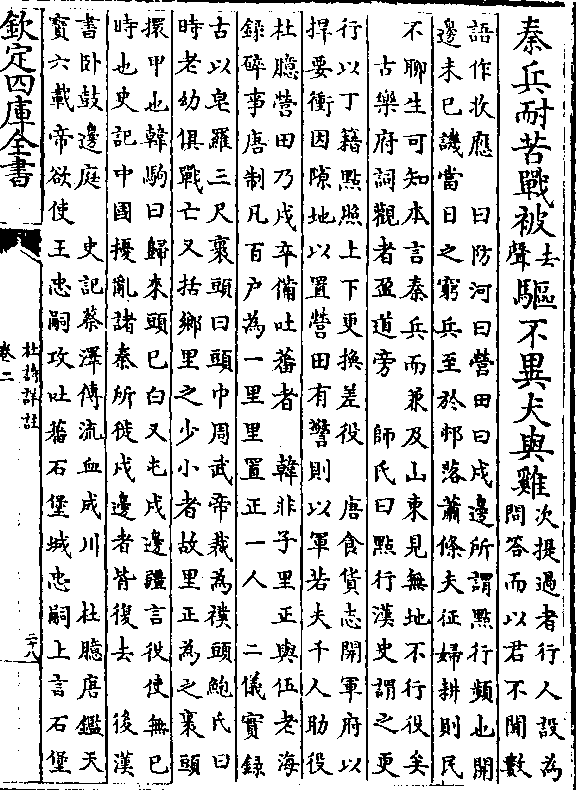 秦兵耐苦戰被去聲驅不異犬與雞
次提過者行人設為
問答而以君不聞數
語作收應 曰防河曰營田曰戍邊所謂點行頻也開
邊未已譏當日之窮兵至於邨落蕭條夫征婦耕則民
不聊生可知本言秦兵而兼及山東見無地不行役矣
古樂府詞觀者盈道旁 師氏曰點行漢史謂之更
行以丁籍點照上下更換差役 唐食貨志開軍府以
捍要衝因隙地以置營田有警則以軍若夫千人助役
杜臆營田乃戍卒備吐蕃者 韓非子里正與伍老海
錄碎事唐制凡百户為一里里置正一人 二儀實錄
古以皂羅三尺裹頭曰頭巾周武帝裁為襆頭鮑氏曰
時老幼俱戰亡又括鄉里之少小者故里正為之裹頭
擐甲也韓駒曰歸來頭已白又屯戍邊疆言役使無已
時也史記中國擾亂諸秦所徙戍邊者皆復去 後漢
書卧鼓邊庭 史記蔡澤傳流血成川 杜臆唐鑑天
寳六載帝欲使王忠嗣攻吐蕃石堡城忠嗣上言石堡
欽定四庫全書
杜詩詳註
卷二
二十八